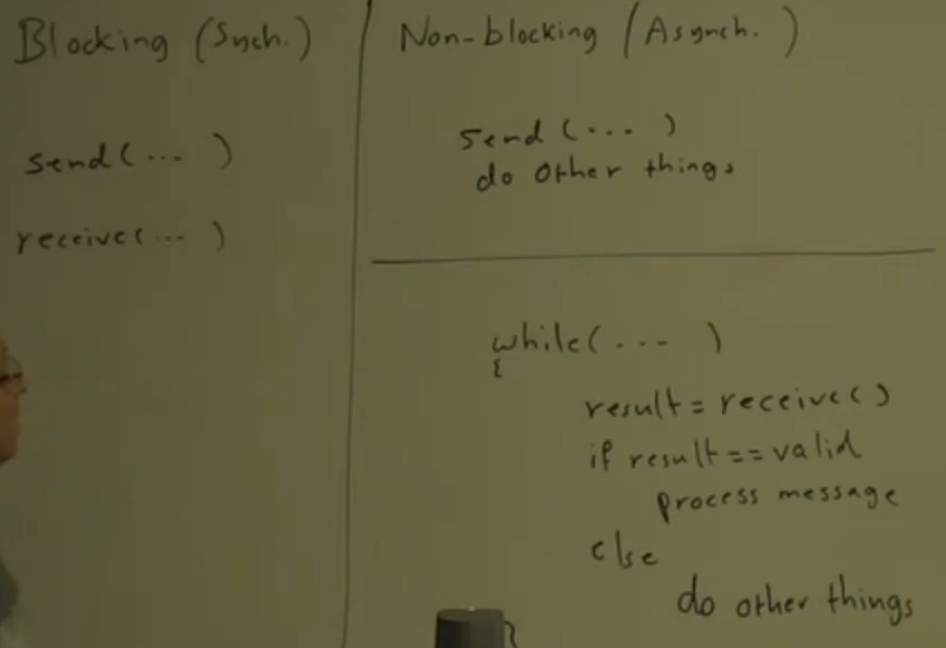 Blocking (Synch.)
send(... )
receive(... )
Non-blocking (Asynch. )
send (... )
do other things
while(... )
{
result = receive()
if result == valid
process message
else
do other things